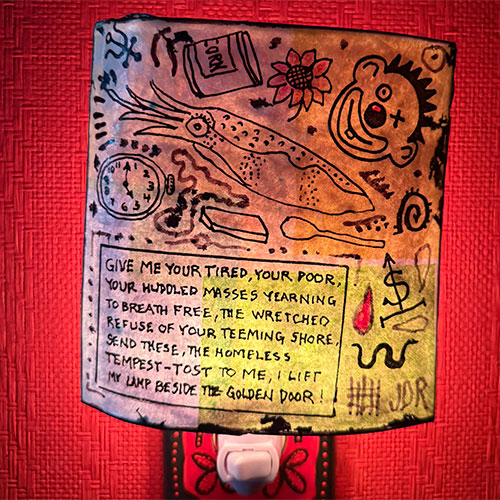 CORN
12 1 2 3 4 5 6
GIVE ME YOUR TIRED, YOUR POOR,
YOUR HUDDLED MASSES YEARNING
TO BREATH FREE, THE WRETCHED
REFUSE OF YOUR TEEMING SHORE,
SEND THESE, THE HOMELESS
TEMPEST-TOST TO ME, I LIFT
MY LAMP BESIDE THE GOLDEN DOOR!
$
JDR